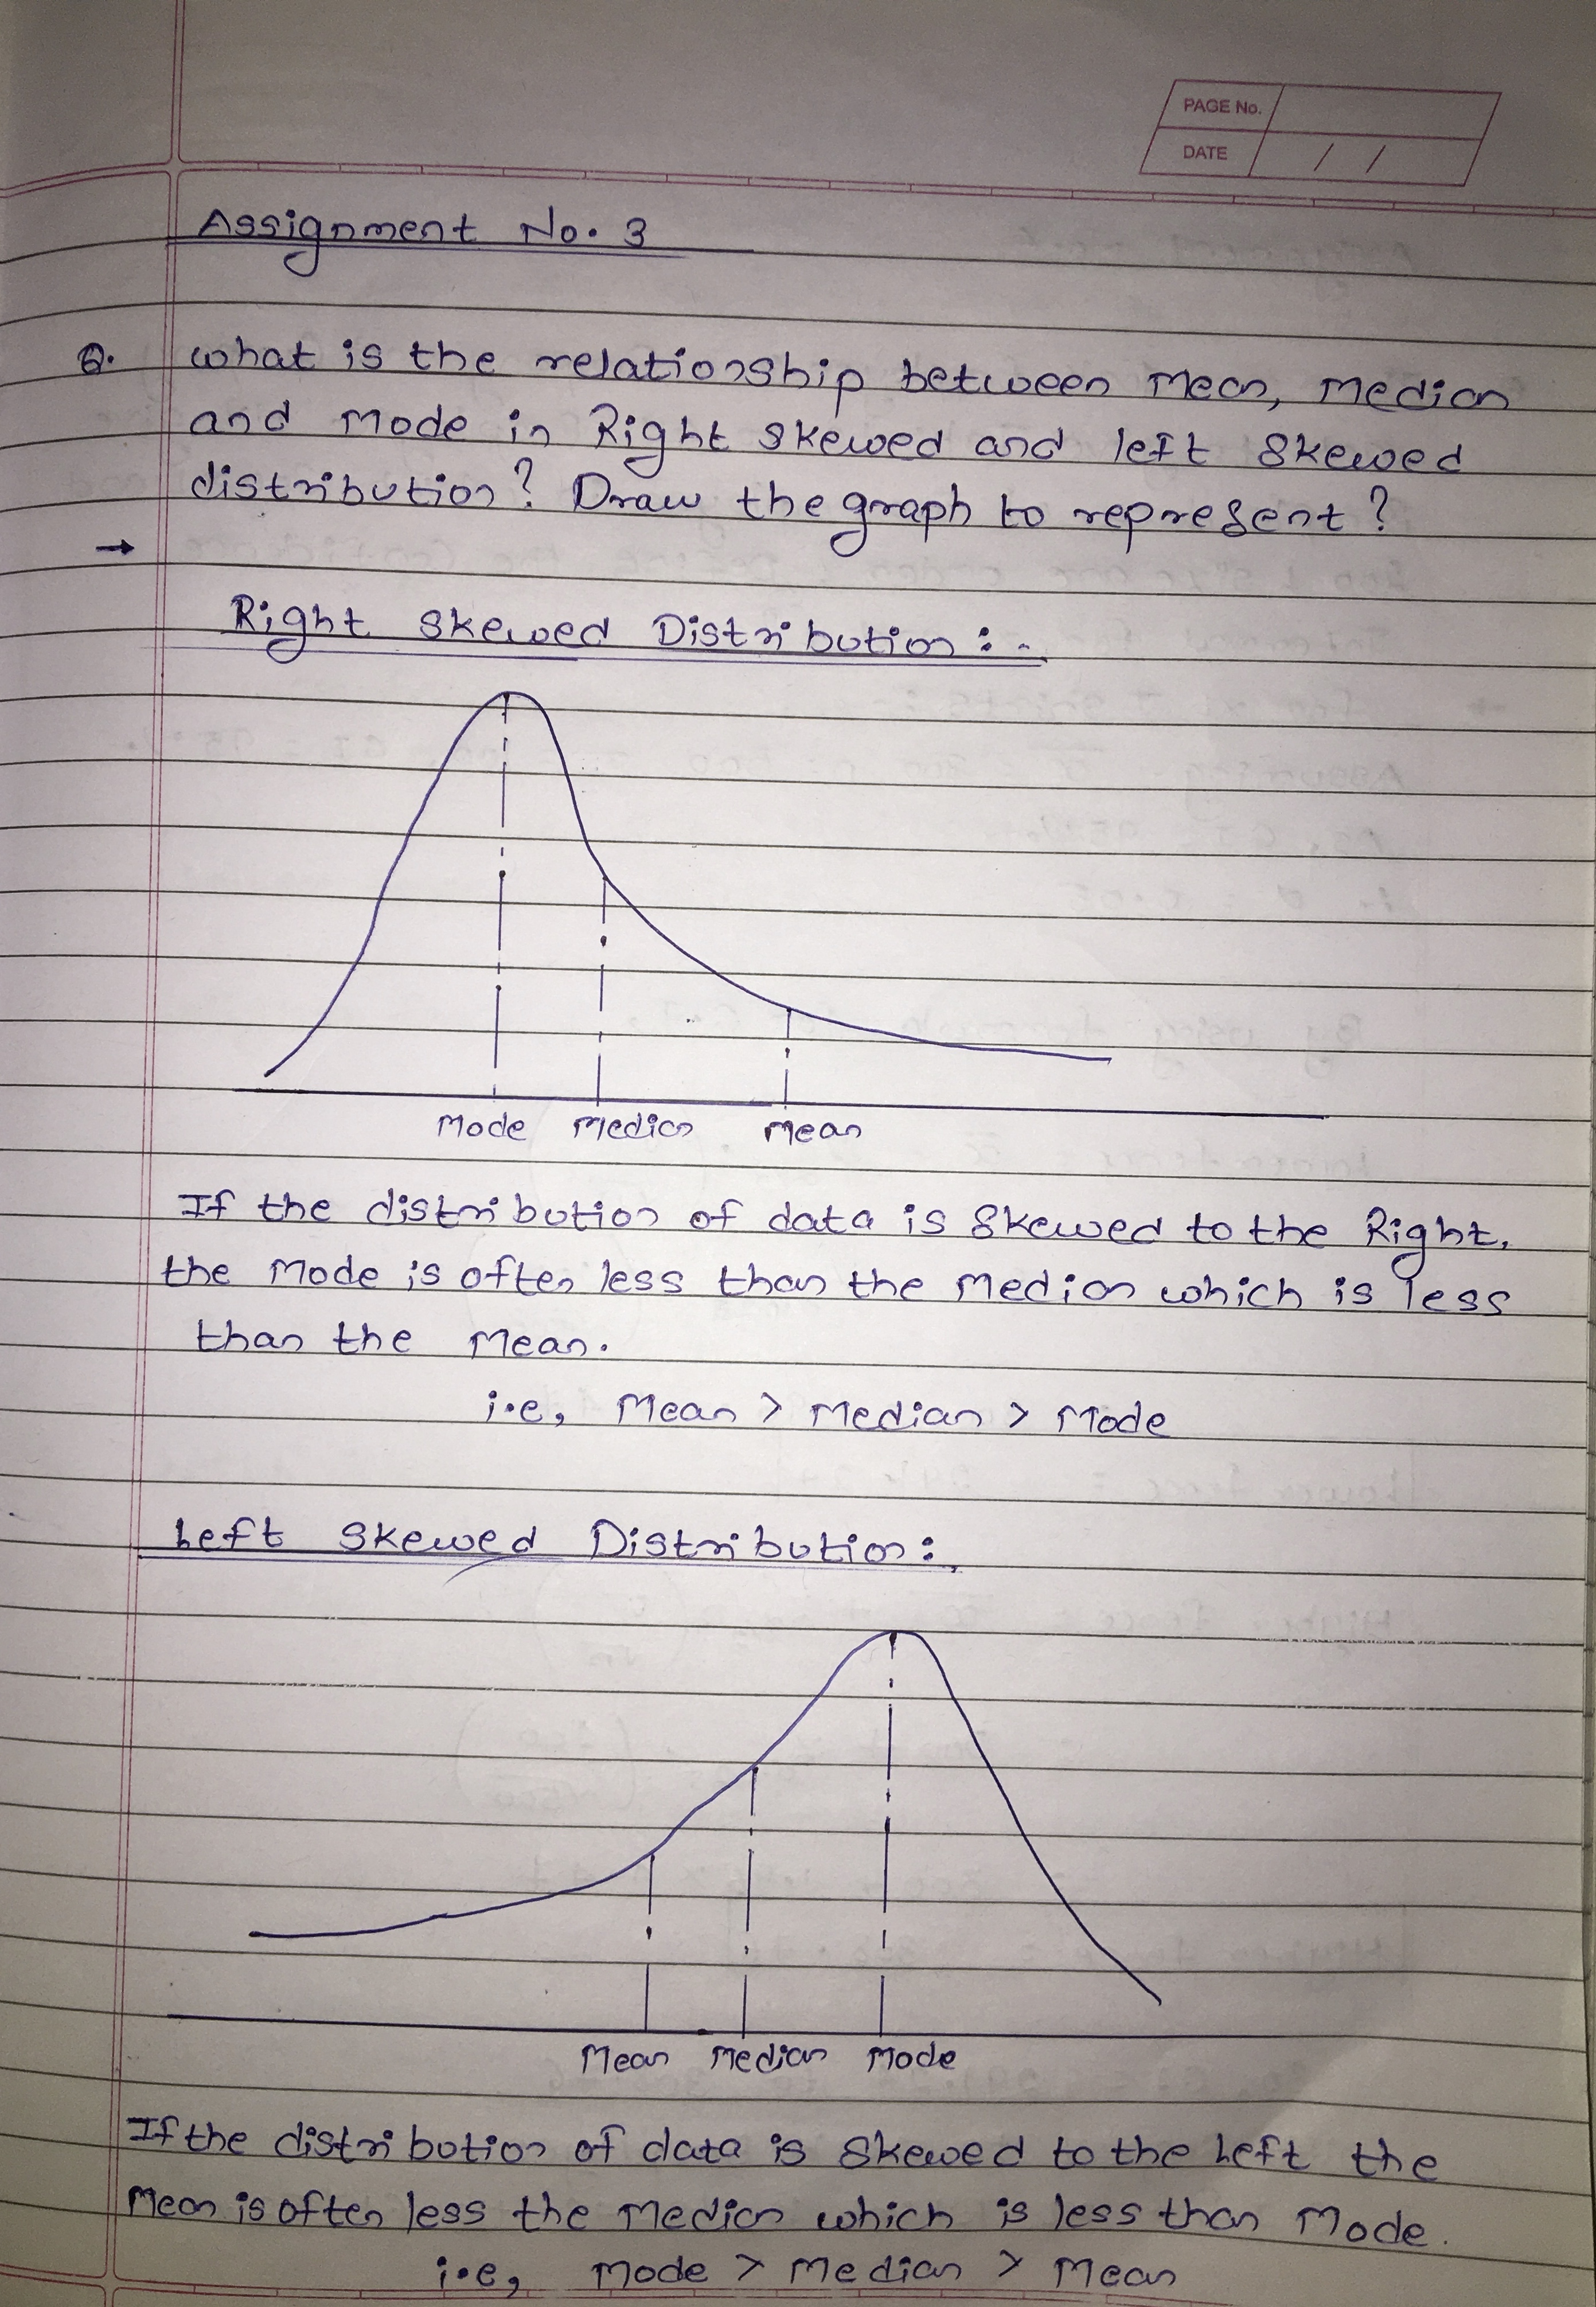 PAGE No.
DATE / /
Assignment No. 3
Q. what is the relationship between Mean, Median
and Mode in Right skewed and left skewed
distribution? Draw the graph to represent?
→
Right skewed Distribution :-
Mode Median Mean
If the distribution of data is skewed to the Right,
the Mode is often less than the Median which is less
than the Mean.
i.e, Mean > Median > Mode
Left skewed Distribution :-
Mean Median Mode
If the distribution of data is skewed to the Left the
Mean is often less the Median which is less than Mode.
i.e, Mode > Median > Mean